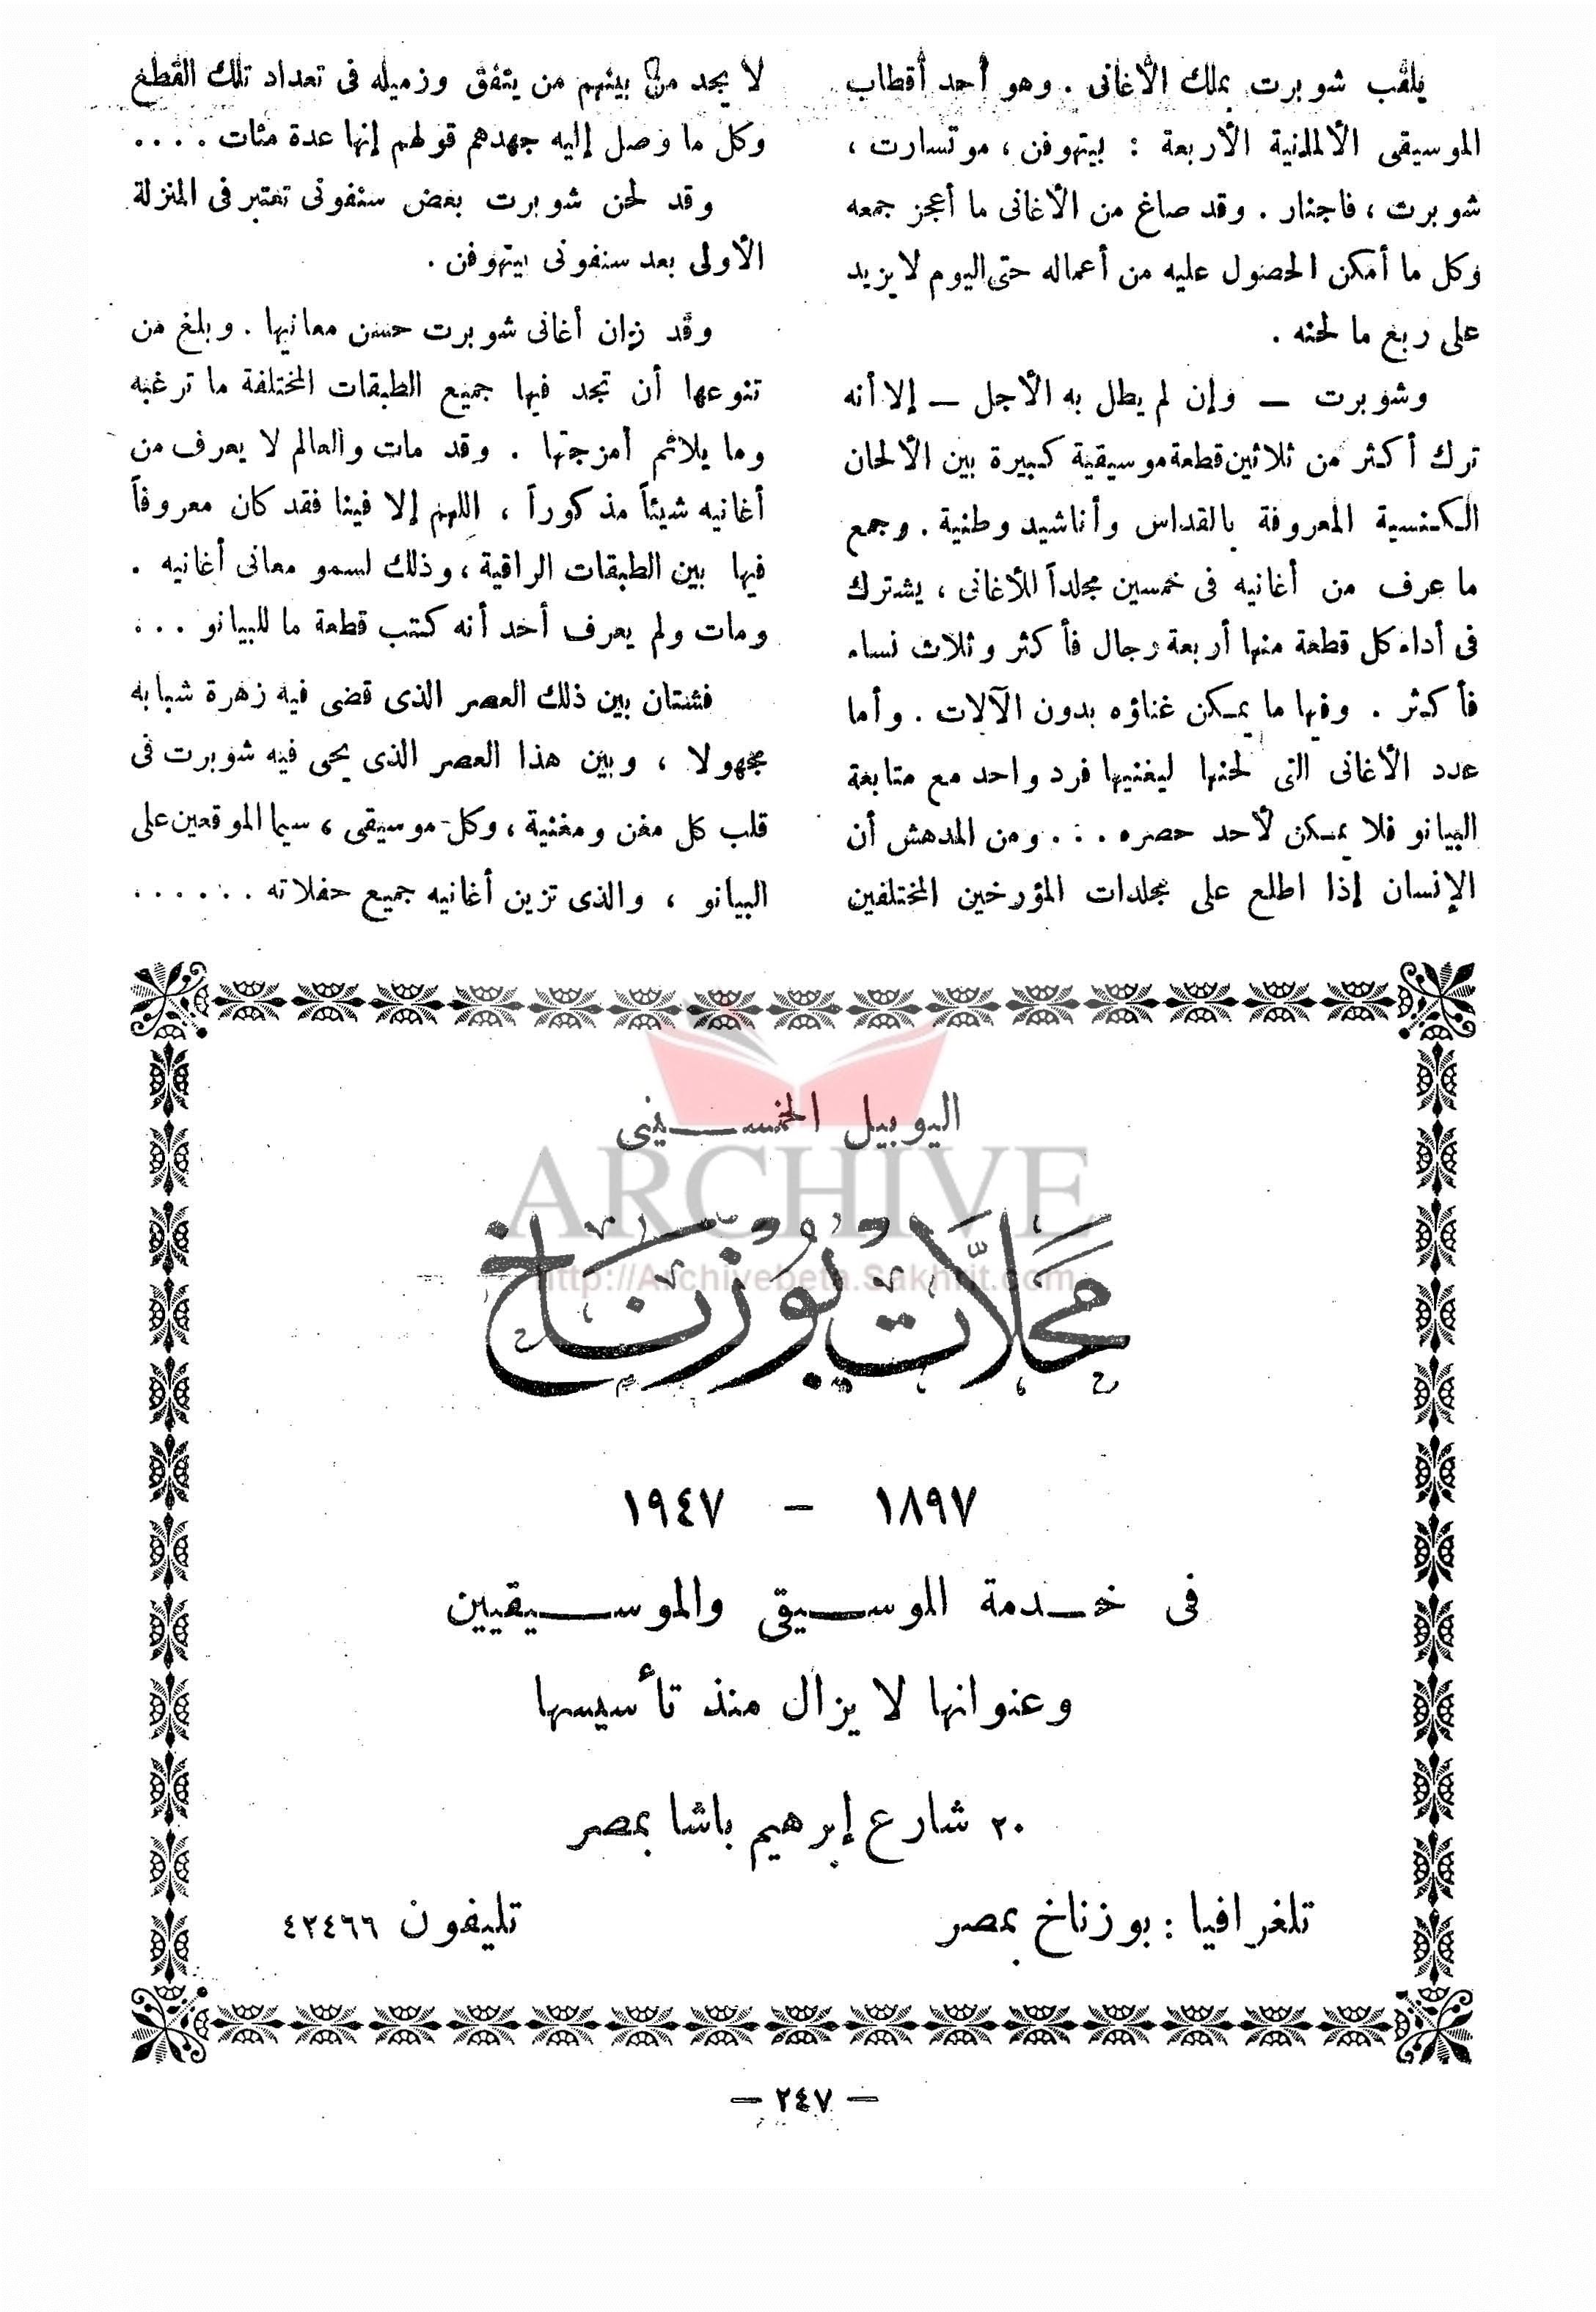 يلقب شوبرت بملك الأغانى . وهو أحد أقطاب
الموسيقى الألمانية الأربعة : بيتهوفن ، موتسارت ،
شوبرت ، فاجنار . وقد صاغ من الأغانى ما أعجز جمعه
وكل ما أمكن الحصول عليه من أعماله حتى اليوم لا يزيد
على ربع ما لحنه .
وشوبرت — وإن لم يطل به الأجل — إلا أنه
ترك أكثر من ثلاثين قطعة موسيقية كبيرة بين الألحان
الكنسية المعروفة بالقداس وأناشيد وطنية . وجمع
ما عرف من أغانيه فى خمسين مجلداً للأغانى ، يشترك
فى أداء كل قطعة منها أربعة رجال فأكثر وثلاث نساء
فأكثر . وفيها ما يمكن غناؤه بدون الآلات . وأما
عدد الأغانى التى لحنها ليغنيها فرد واحد مع متابعة
البيانو فلا يمكن لأحد حصره . . . ومن المدهش أن
الإنسان إذا اطلع على مجلدات المؤرخين المختلفين
لا يجد من بينهم من يتفق وزميله فى تعداد تلك القطع
وكل ما وصل إليه جهدهم قولهم إنها عدة مئات . . . .
وقد لحن شوبرت بعض سنفونى تعتبر فى المنزلة
الأولى بعد سنفونى بيتهوفن .
وقد زان أغانى شوبرت حسن معانيها . وبلغ من
تنوعها أن تجد فيها جميع الطبقات المختلفة ما ترغبه
وما يلائم أمزجتها . وقد مات والعالم لا يعرف من
أغانيه شيئاً مذكوراً ، اللهم إلا فينا فقد كان معروفاً
فيها بين الطبقات الراقية ، وذلك لسمو معانى أغانيه .
ومات ولم يعرف أحد أنه كتب قطعة ما للبيانو . . .
فشتان بين ذلك العصر الذى قضى فيه زهرة شبابه
مجهولا ، وبين هذا العصر الذى يحى فيه شوبرت فى
قلب كل مغن ومغنية ، وكل موسيقى ، سيما الموقعين على
البيانو ، والذى تزين أغانيه جميع حفلاته . . . . . .
اليوبيل الخمسينى
ARCHIVE
محلات بوزناخ
http://Archivebeta.Sakhrit.com
١٨٩٧ - ١٩٤٧
فى خدمة الموسيقى والموسيقيين
وعنوانها لا يزال منذ تأسيسها
٢٠ شارع إبرهيم باشا بمصر
تلغرافيا : بوزناخ بمصر تليفون ٤٢٤٦٦
— ٢٤٧ —